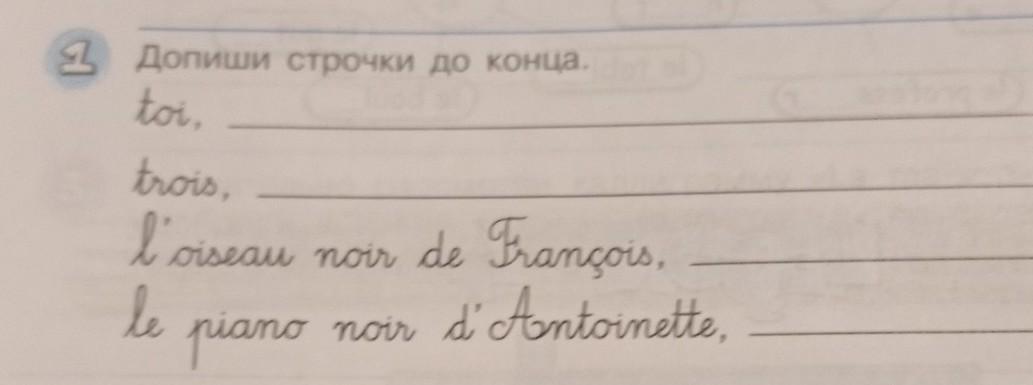 1 Допиши строчки до конца.
toi,
trois,
l'oiseau noir de François,
le piano noir d'Antoinette,